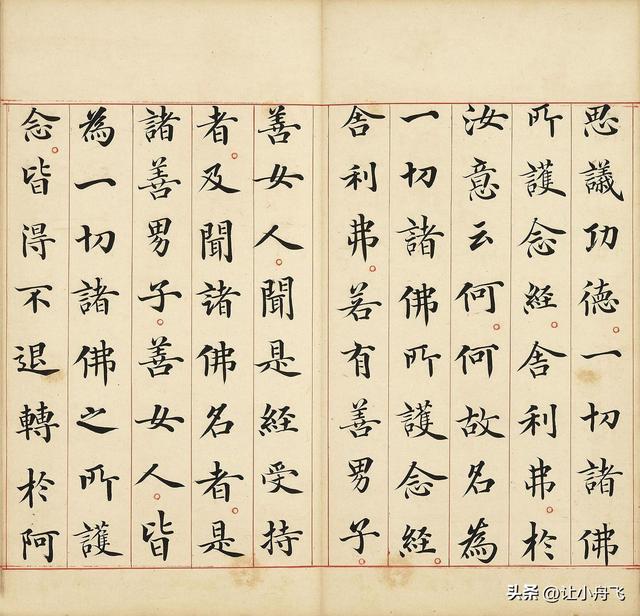 思議功德。一切諸佛
所護念經。舍利弗。於
汝意云何。何故名為
一切諸佛所護念經。
舍利弗。若有善男子。
善女人。聞是經受持
者。及聞諸佛名者。是
諸善男子。善女人。皆
為一切諸佛之所護
念。皆得不退轉於阿
头条 @让小舟飞